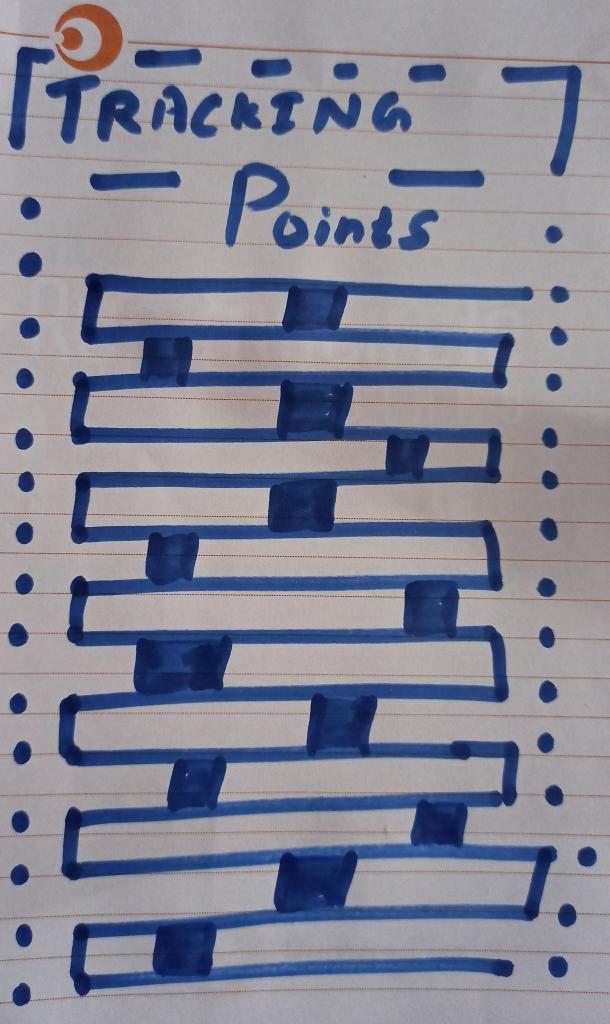 TRACKING
Points